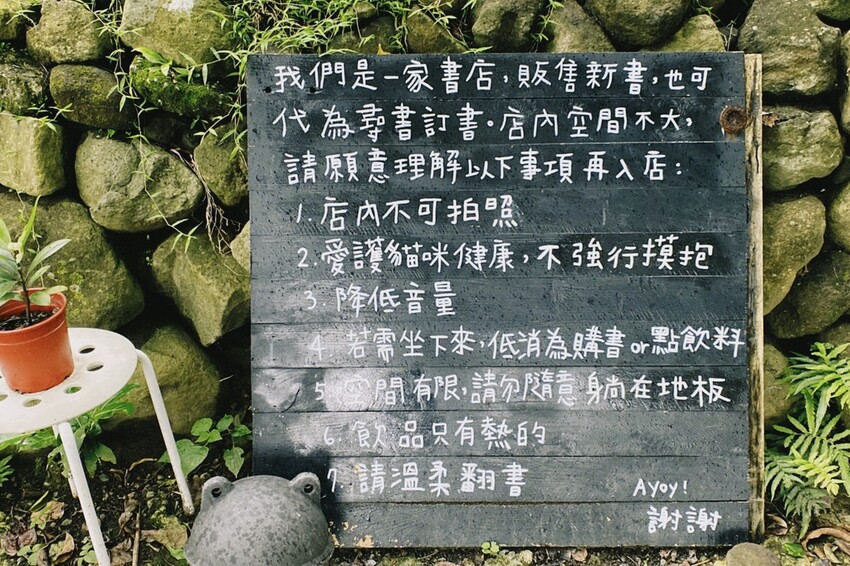 我們是一家書店,販售新書,也可
代為尋書訂書。店內空間不大,
請願意理解以下事項再入店:
1. 店內不可拍照
2. 愛護貓咪健康,不強行摸抱
3. 降低音量
4. 若需坐下來,低消為購書or點飲料
5. 空間有限,請勿隨意躺在地板
6. 飲品只有熱的
7. 請溫柔翻書
Ayoy!
謝謝